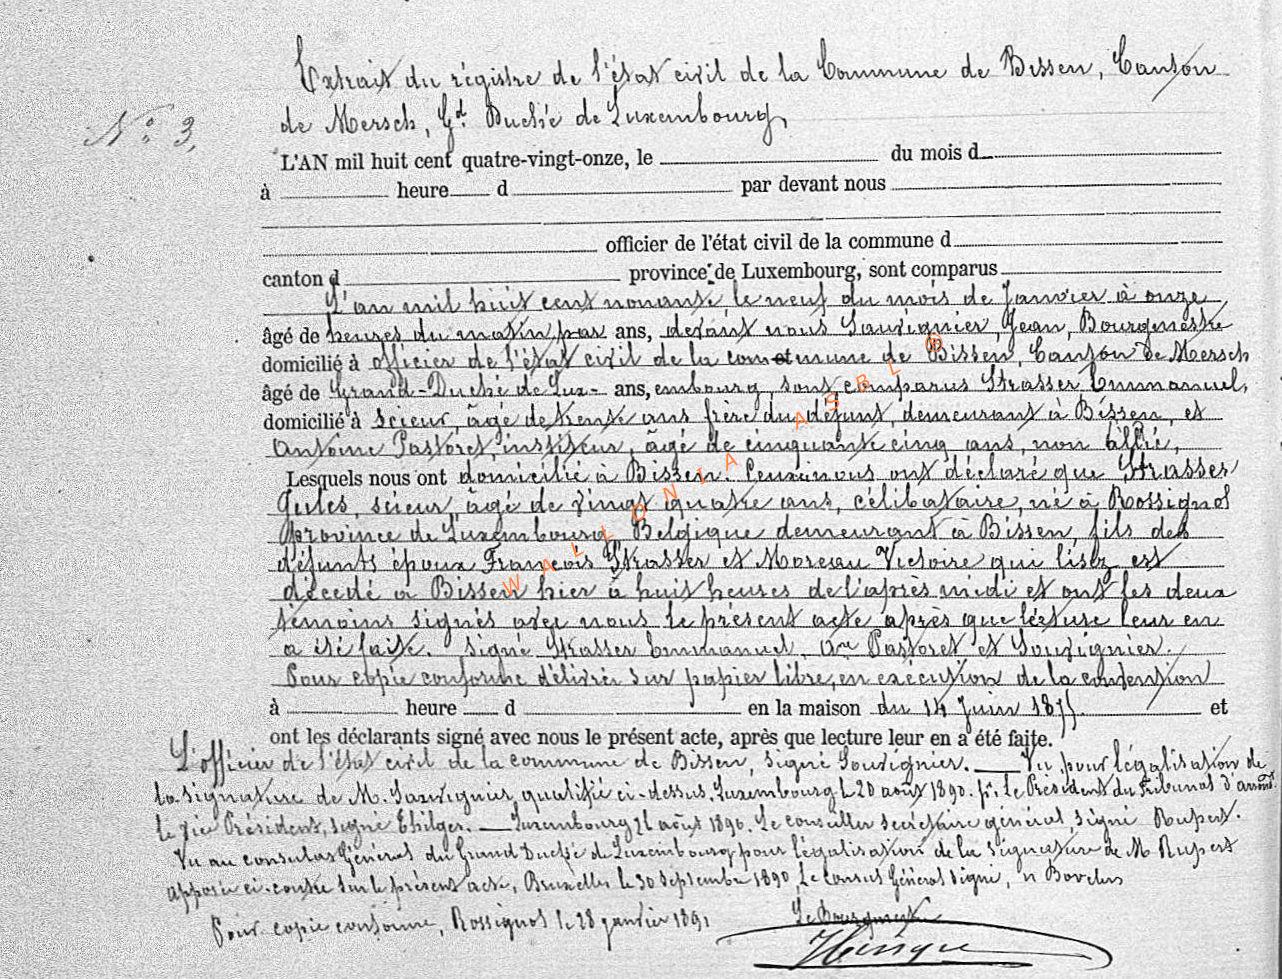 Extrait du régistre de l'état civil de la Commune de Bissen, Canton
de Mersch, Gd. Duché de Luxembourg,
No. 3,
L'AN mil huit cent quatre-vingt-onze, le du mois d
à heure d par devant nous
officier de l'état civil de la commune d
canton d province de Luxembourg, sont comparus
L'an mil huit cent nonante le neuf du mois de Janvier à onze
âgé de heures du matin, par ans, devant nous Sauvignier Jean, Bourgmestre
domicilié à officier de l'état civil de la com et mune de Bissen, Canton de Mersch
âgé de Grand-Duché de Lux- ans, embourg sont comparus Strasser Emmanuel,
domicilié à scieur, âgé de trente ans frère du défunt, demeurant à Bissen, et
Antoine Pastoret, instituteur, âgé de cinquante cinq ans, non allié,
Lesquels nous ont domicilié à Bissen. Ceux nous ont déclaré que Strasser
Jules, scieur, âgé de vingt quatre ans, célibataire, né à Rossignol
province de Luxembourg, Belgique demeurant à Bissen, fils des
défunts époux François Strasser et Moreau Victoire qui est
décedé à Bissen hier à huit heures de l'après midi et ont les deux
témoins signés avec nous le présent acte après que lecture leur en
a été faite. signé Strasser Emmanuel, Ane Pastoret et Souvignier.
Pour copie conforme délivrée sur papier libre, en exécution de la convension
à heure d en la maison du 14 Juin 1875 et
ont les déclarants signé avec nous le présent acte, après que lecture leur en a été faite.
L'officier de l'état civil de la commune de Bissen, signé Souvignier. Vu pour légalisation de
la signature de M. Sauvignier qualifié ci-dessus. Luxembourg L 20 août 1890. pr. Le Président du Tribunal d'arrondt.
le Président, signé Luxembourg 21 août 1890. Le conseiller secrétaire général, signé Rupert.
Vu au consulat Général du Grand Duché de Luxembourg pour légalisation de la signature de M. Rupert
apposée ci-contre sur le présent acte, Bruxelles le 30 septembre 1890, Le Consul Général signé,
Pour copie conforme, Rossignol le 28 janvier 1891
Le Bourgmestre
WALLONIA ASBL ©